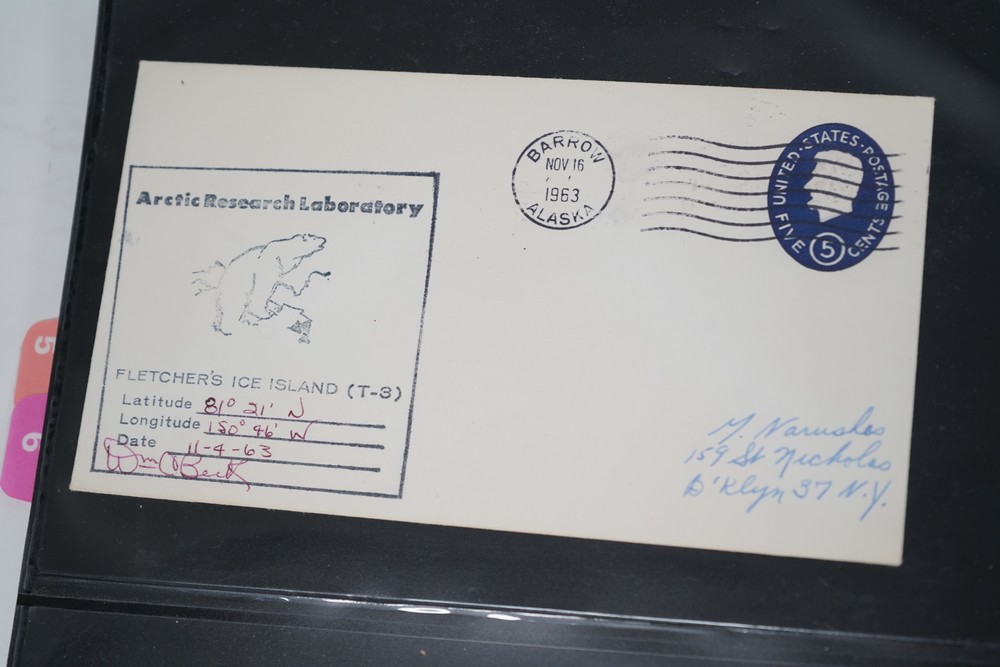 Arctic Research Laboratory
FLETCHER'S ICE ISLAND (T-3)
Latitude 81° 21' N
Longitude 150° 46' W
Date 11-4-63
Wm Beck
BARROW
NOV 16
1963
ALASKA
UNITED·STATES·POSTAGE
FIVE 5 CENTS
159 St Nicholas
B'klyn 37 N.Y.
5
6